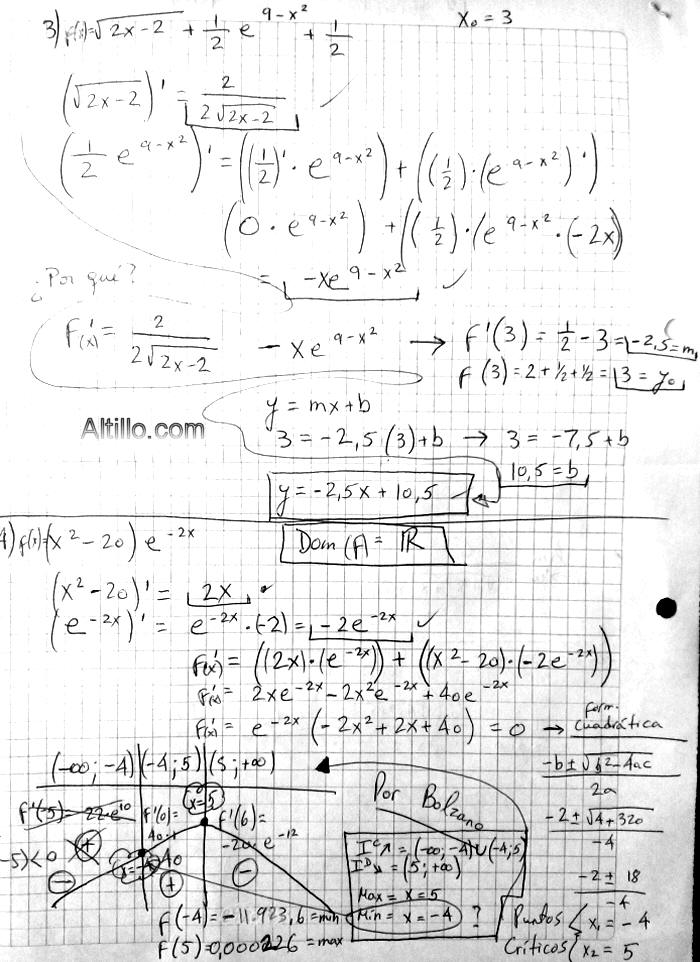 3) f(x)=√(2x-2) + 1/2 e^(9-x²) + 1/2    X₀ = 3
(√(2x-2))' = 2/(2√(2x-2))
(1/2 e^(9-x²))' = ((1/2)' · e^(9-x²)) + ((1/2)·(e^(9-x²))')
(0 · e^(9-x²)) + ((1/2)·(e^(9-x²) · (-2x)
= -xe^(9-x²) ✓
¿Por qué?
F'(x) = 2/(2√(2x-2)) - xe^(9-x²) → f'(3) = 1/2 - 3 = -2,5 = m
f(3) = 2 + 1/2 + 1/2 = 3 = y₀
y = mx+b
Altillo.com
3 = -2,5(3)+b → 3 = -7,5+b
10,5 = b
y = -2,5x + 10,5
4) f(x)=(x²-20) e^(-2x)    Dom (f) = ℝ
(x²-20)' = 2x
(e^(-2x))' = e^(-2x)·(-2) = -2e^(-2x) ✓
f'(x) = ((2x)·(e^(-2x))) + ((x²-20)·(-2e^(-2x)))
f'(x) = 2xe^(-2x) - 2x²e^(-2x) + 40e^(-2x)
f'(x) = e^(-2x) (-2x²+2x+40) = 0 → form. Cuadrática
(-∞; -4) (-4; 5) (5; +∞)
(-b±√(b²-4ac))/2a
(-2±√(4+320))/-4
(-2± 18)/-4
Puntos Críticos { x₁ = -4
x₂ = 5
Por Bolzano
f'(-5) = -22·e^10    f'(0) = 40·1    x=5    f'(6) = -20·e^(-12)
-5) < 0    +    x=-4    40
-    +    -
I^C↗ = (-∞; -4) ∪ (-4; 5)
I^D↘ = (5; +∞)
Max = x = 5
Min = x = -4 ?
f(-4) = -11.923,6 = min
f(5) = 0,000226 = max